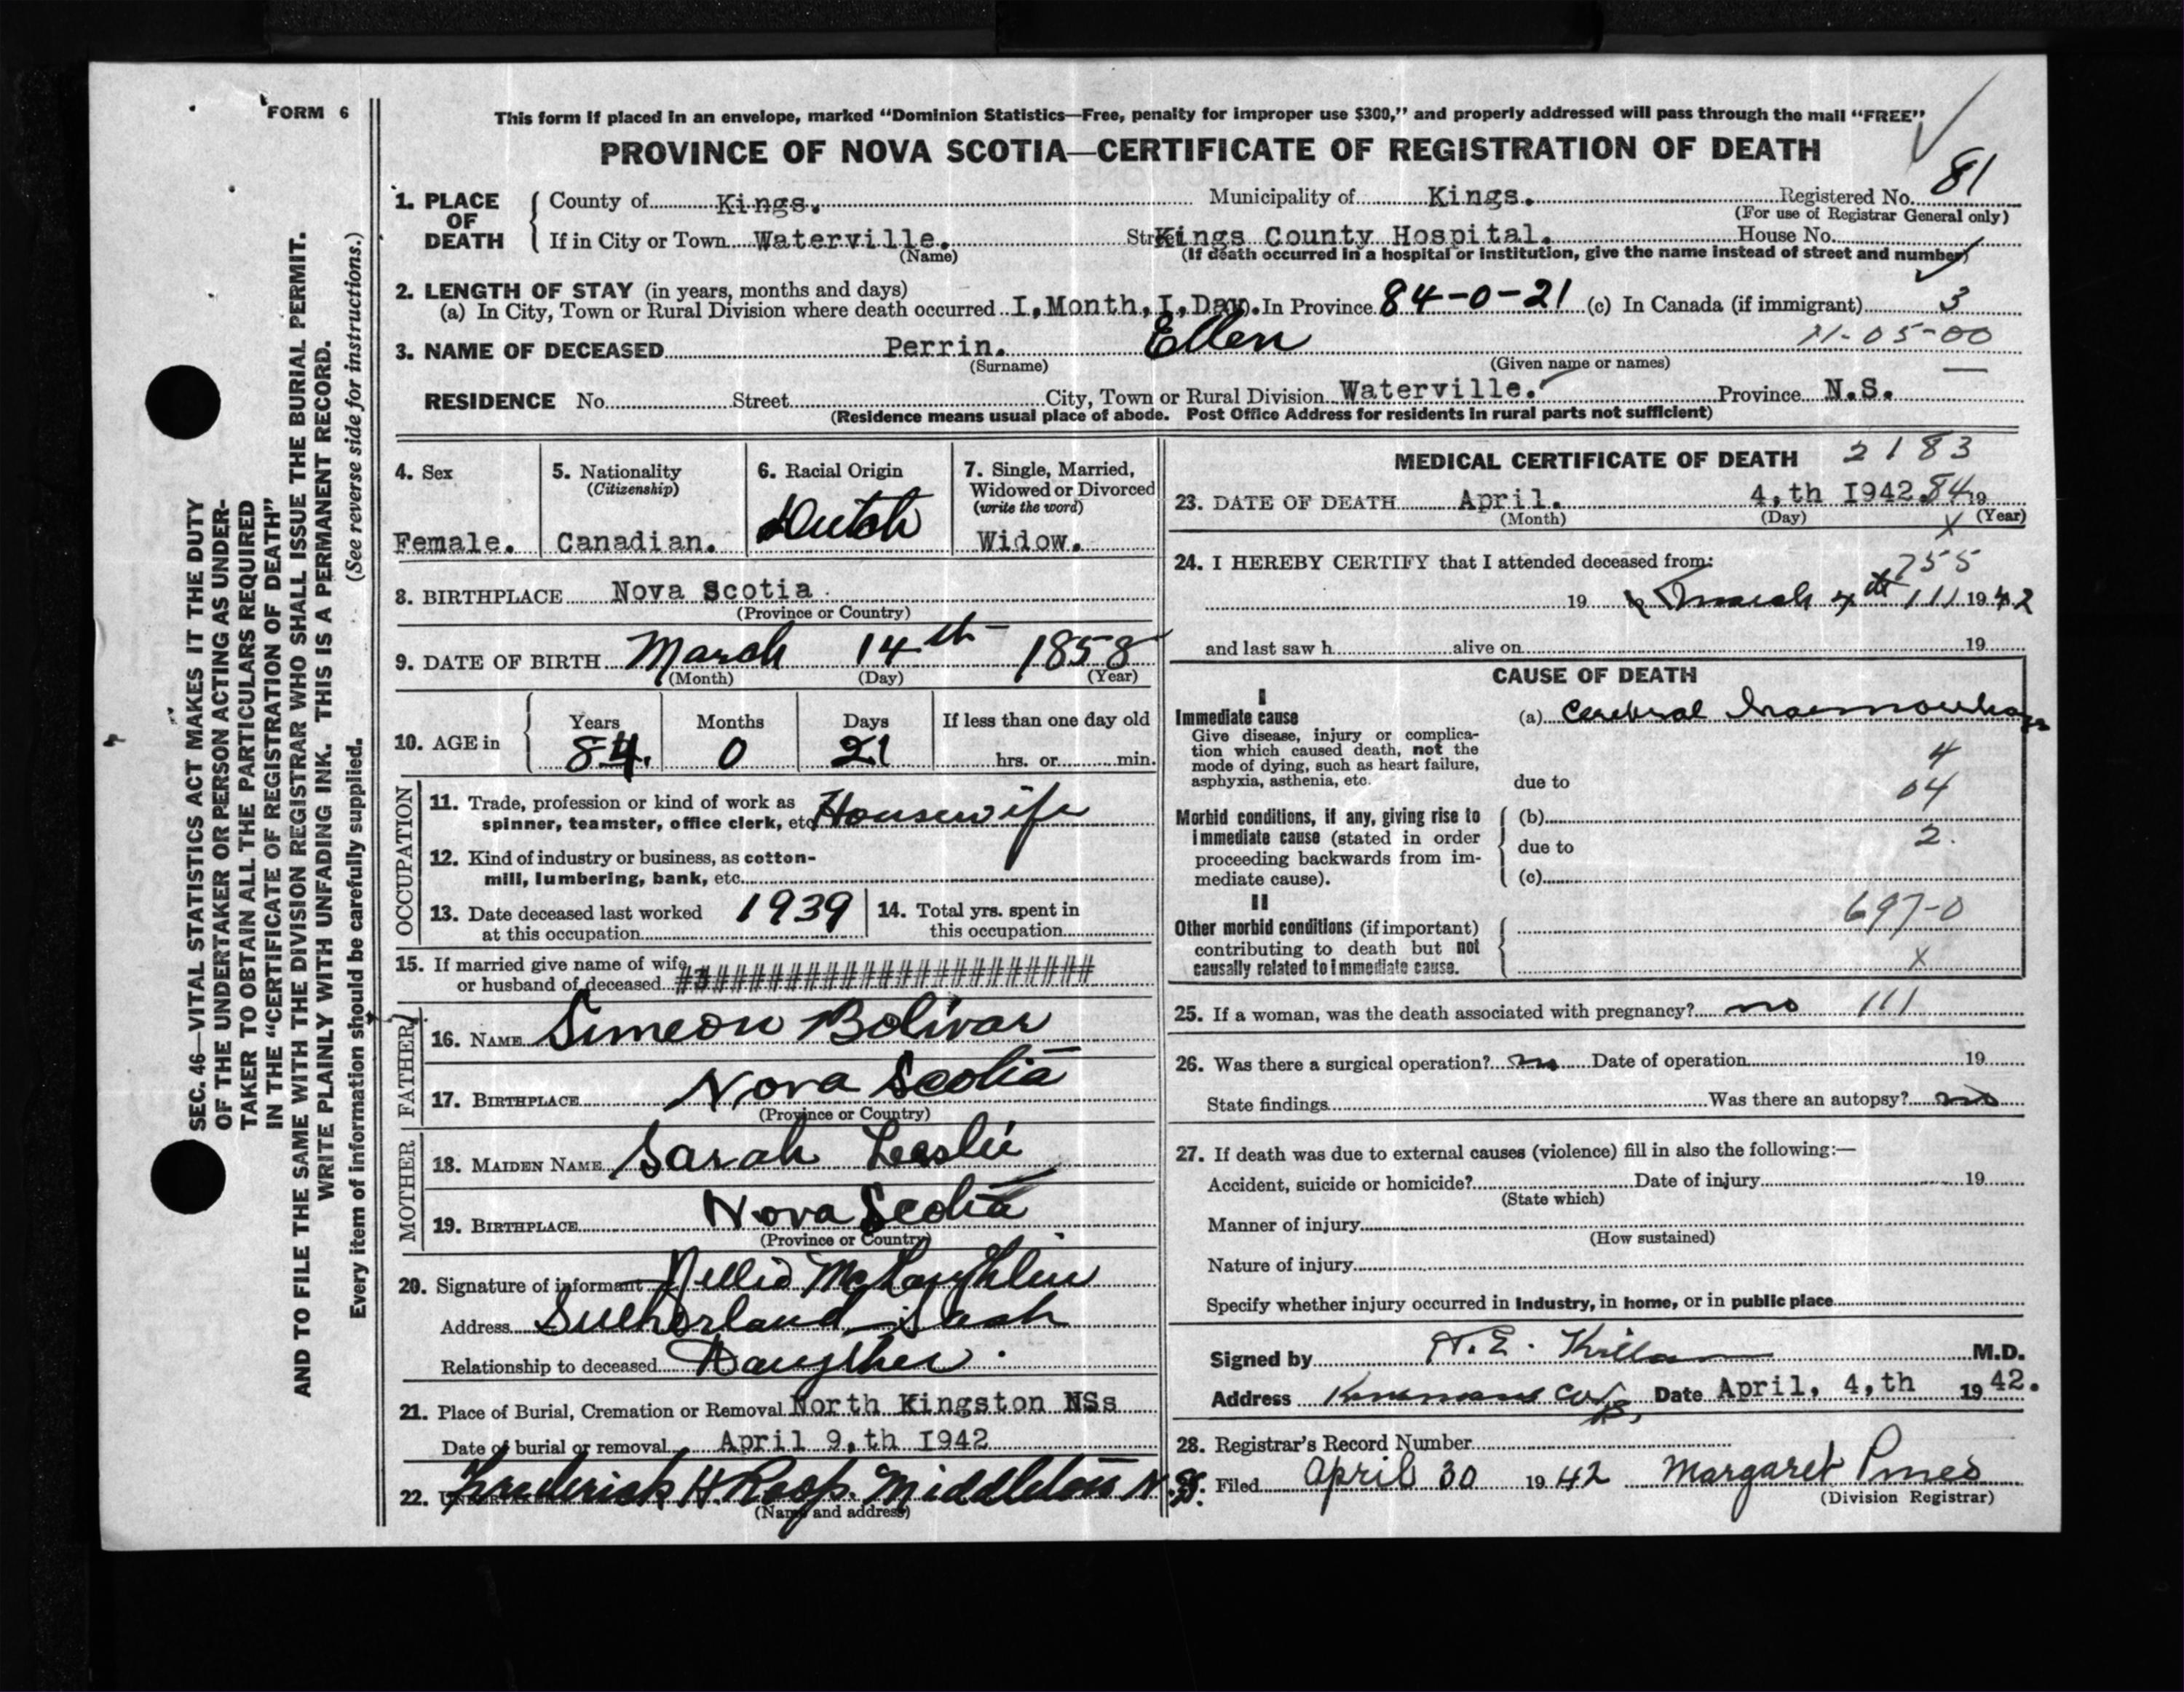 FORM 6
This form if placed in an envelope, marked "Dominion Statistics—Free, penalty for improper use $300," and properly addressed will pass through the mail "FREE"
PROVINCE OF NOVA SCOTIA—CERTIFICATE OF REGISTRATION OF DEATH
1. PLACE OF DEATH County of Kings. Municipality of Kings. Registered No. 81
(For use of Registrar General only)
If in City or Town Waterville. Street Kings County Hospital. House No.
(Name) (If death occurred in a hospital or institution, give the name instead of street and number)
2. LENGTH OF STAY (in years, months and days)
(a) In City, Town or Rural Division where death occurred I, Month, I, Day. In Province 84-0-21 (c) In Canada (if immigrant) 3
3. NAME OF DECEASED Perrin. Ellen 11-05-00
(Surname) (Given name or names)
RESIDENCE No. Street City, Town or Rural Division Waterville. Province N.S.
(Residence means usual place of abode. Post Office Address for residents in rural parts not sufficient)
4. Sex
Female.
5. Nationality
(Citizenship)
Canadian.
6. Racial Origin
Dutch
7. Single, Married,
Widowed or Divorced
(write the word)
Widow.
8. BIRTHPLACE Nova Scotia
(Province or Country)
9. DATE OF BIRTH March 14th 1858
(Month) (Day) (Year)
10. AGE in Years Months Days If less than one day old
84. 0 21 hrs. or min.
OCCUPATION
11. Trade, profession or kind of work as
spinner, teamster, office clerk, etc. Housewife
12. Kind of industry or business, as cotton-
mill, lumbering, bank, etc.
13. Date deceased last worked
at this occupation 1939
14. Total yrs. spent in
this occupation
15. If married give name of wife
or husband of deceased ########################
FATHER
16. NAME Simeon Bolivar
17. BIRTHPLACE Nova Scotia
(Province or Country)
MOTHER
18. MAIDEN NAME Sarah Leslie
19. BIRTHPLACE Nova Scotia
(Province or Country)
20. Signature of informant Nellie McLaughlin
Address Sutherland Sask
Relationship to deceased Daughter.
21. Place of Burial, Cremation or Removal North Kingston NSs
Date of burial or removal April 9,th I942
22. Frederick H. Roop. Middleton N.S.
(Name and address)
MEDICAL CERTIFICATE OF DEATH 2183
23. DATE OF DEATH April. 4,th I942. 84 19
(Month) (Day) (Year)
X
24. I HEREBY CERTIFY that I attended deceased from:
755
19 to March 4th 111 1942
and last saw h alive on 19
CAUSE OF DEATH
I
Immediate cause
Give disease, injury or complica-
tion which caused death, not the
mode of dying, such as heart failure,
asphyxia, asthenia, etc.
(a) Cerebral Haemorrhage
4
due to 04
Morbid conditions, if any, giving rise to
immediate cause (stated in order
proceeding backwards from im-
mediate cause).
(b)
due to 2.
(c)
II
Other morbid conditions (if important)
contributing to death but not
causally related to immediate cause.
697-0
X
25. If a woman, was the death associated with pregnancy? no 111
26. Was there a surgical operation? no Date of operation 19
State findings Was there an autopsy? no
27. If death was due to external causes (violence) fill in also the following:—
Accident, suicide or homicide? Date of injury 19
(State which)
Manner of injury
(How sustained)
Nature of injury
Specify whether injury occurred in Industry, in home, or in public place
Signed by M.D.
Address Date April, 4,th 1942.
28. Registrar's Record Number
Filed April 30 1942 Margaret Pines
(Division Registrar)
SEC. 46—VITAL STATISTICS ACT MAKES IT THE DUTY
OF THE UNDERTAKER OR PERSON ACTING AS UNDER-
TAKER TO OBTAIN ALL THE PARTICULARS REQUIRED
IN THE "CERTIFICATE OF REGISTRATION OF DEATH"
AND TO FILE THE SAME WITH THE DIVISION REGISTRAR WHO SHALL ISSUE THE BURIAL PERMIT.
WRITE PLAINLY WITH UNFADING INK. THIS IS A PERMANENT RECORD.
Every item of information should be carefully supplied. (See reverse side for instructions.)